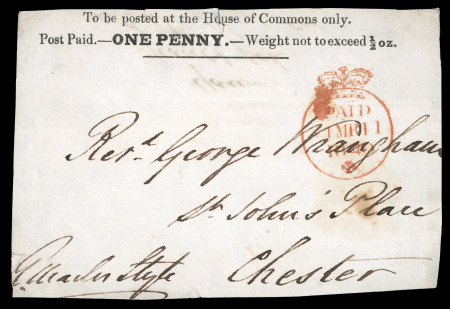 To be posted at the House of Commons only.
Post Paid.—ONE PENNY.—Weight not to exceed ½ oz.
PAID
Revd. George Wrangham
St. John's Place
Chester